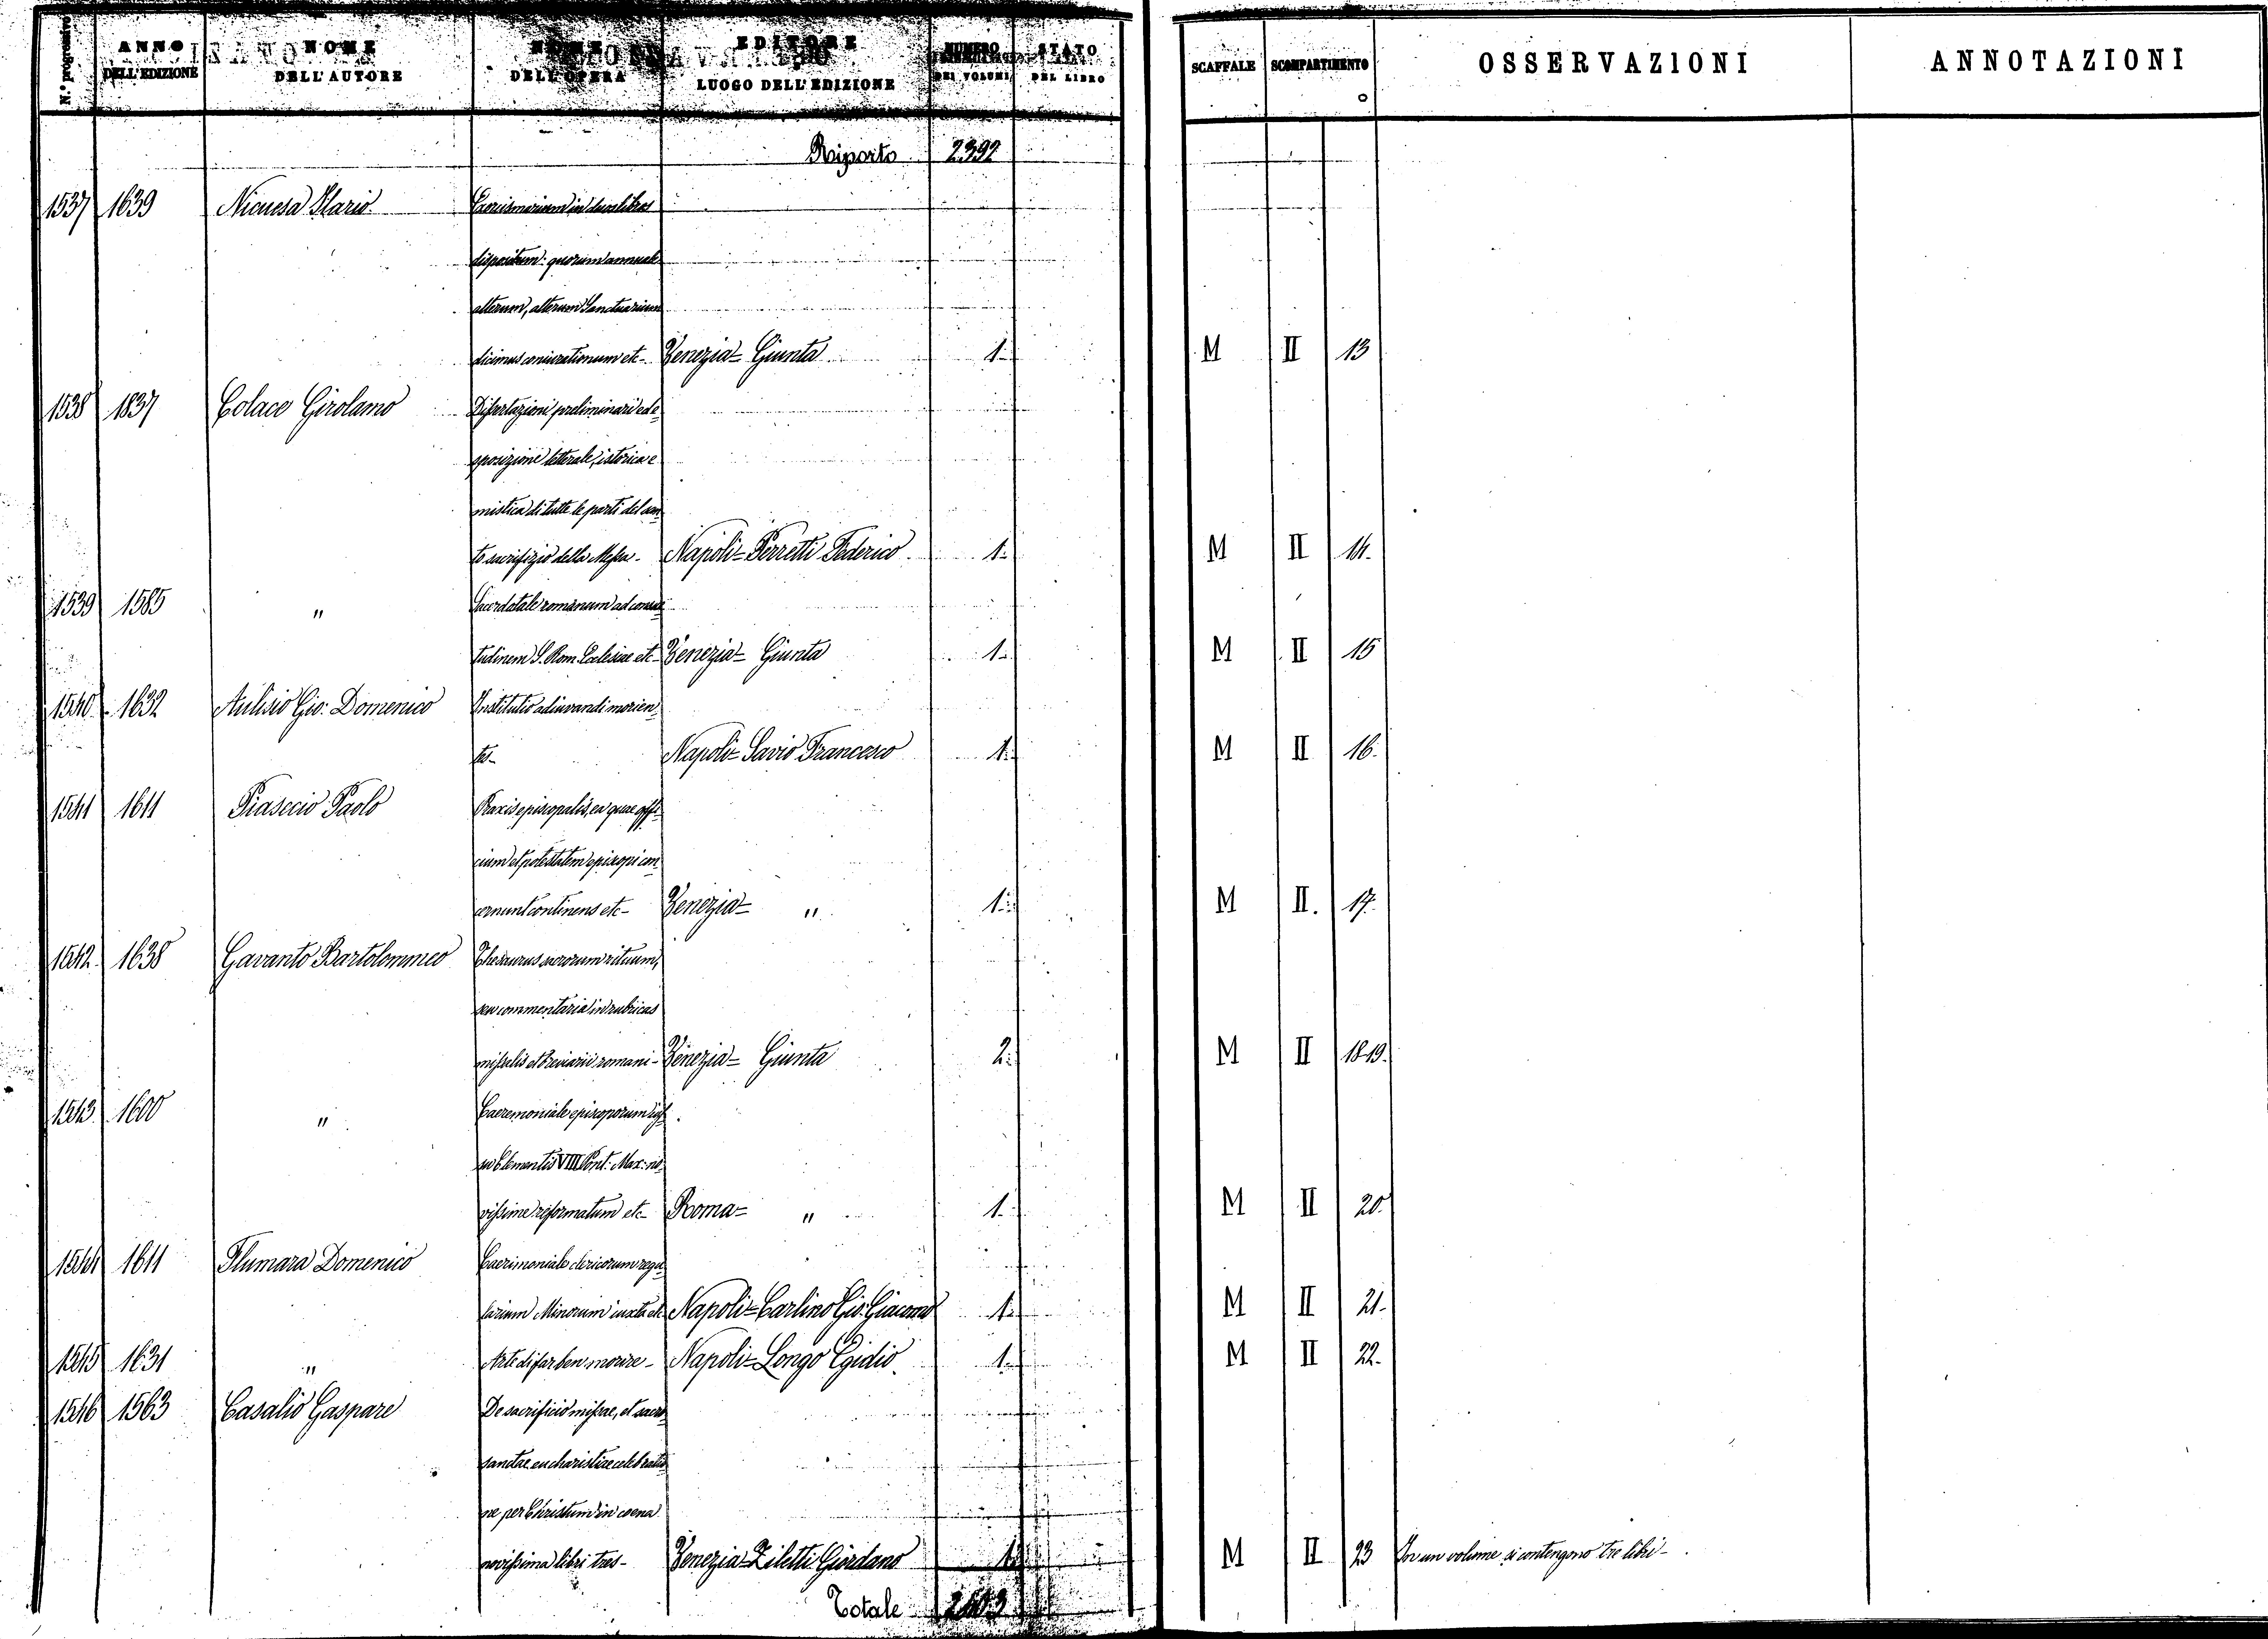 N.º progressivo | ANNO DELL'EDIZIONE | NOME DELL'AUTORE | NOME DELL'OPERA | EDITORE LUOGO DELL'EDIZIONE | NUMERO DEI VOLUMI | STATO DEL LIBRO | SCAFFALE | SCOMPARTIMENTO | OSSERVAZIONI | ANNOTAZIONI
Riporto 2392
1537 1639 Nicuesa Ilario Exorcismarium in duos libros
dispositum: quorum annuale
alterum, alterum Sanctuarium
dicimus coniurationum etc- Venezia= Giunta 1. M II 13
1538 1837 Colace Girolamo Dissertazioni preliminari ed e
sposizione letterale, istorica e
mistica di tutte le parti del san
to sacrifizio della Messa- Napoli= Perretti Federico 1. M II 14.
1539 1585 " Sacerdotale romanum ad consue
tudinem S. Rom. Ecclesiae etc- Venezia= Giunta 1. M II 15
1540 1632 Aulisio Gio: Domenico Institutio adiuvandi morien
tes- Napoli= Savio Francesco 1. M II 16.
1541 1611 Piasecio Paolo Praxis episcopalis, ea quae offi
cium et potestatem episcopi con
cernunt continens etc- Venezia= " 1. M II. 17.
1542. 1638 Gavanto Bartolommeo Thesaurus sacrorum rituum,
seu commentaria in rubricas
missalis et breviarii romani- Venezia= Giunta 2. M II 18-19.
1543. 1600 " Caeremoniale episcoporum ius
su Clementis VIII Pont. Max: no
vissime reformatum etc- Roma= " 1. M II 20.
1544 1611 Flumara Domenico Caerimoniale clericorum regu
larium Minorum iuxta etc Napoli= Carlino Gio: Giacomo 1. M II 21.
1545 1631 " Arte di far ben morire- Napoli= Longo Egidio. 1. M II 22.
1546 1563 Casalio Gaspare De sacrificio missae, et sacro
sanctae eucharistiae celebratio
ne per Christum in coena
novissima libri tres- Venezia= Ziletti Giordano 1. M II 23 In un volume si contengono tre libri-
Totale 2403